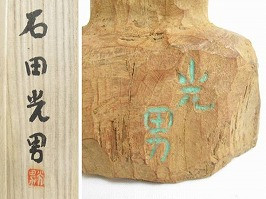 石田光男
光男